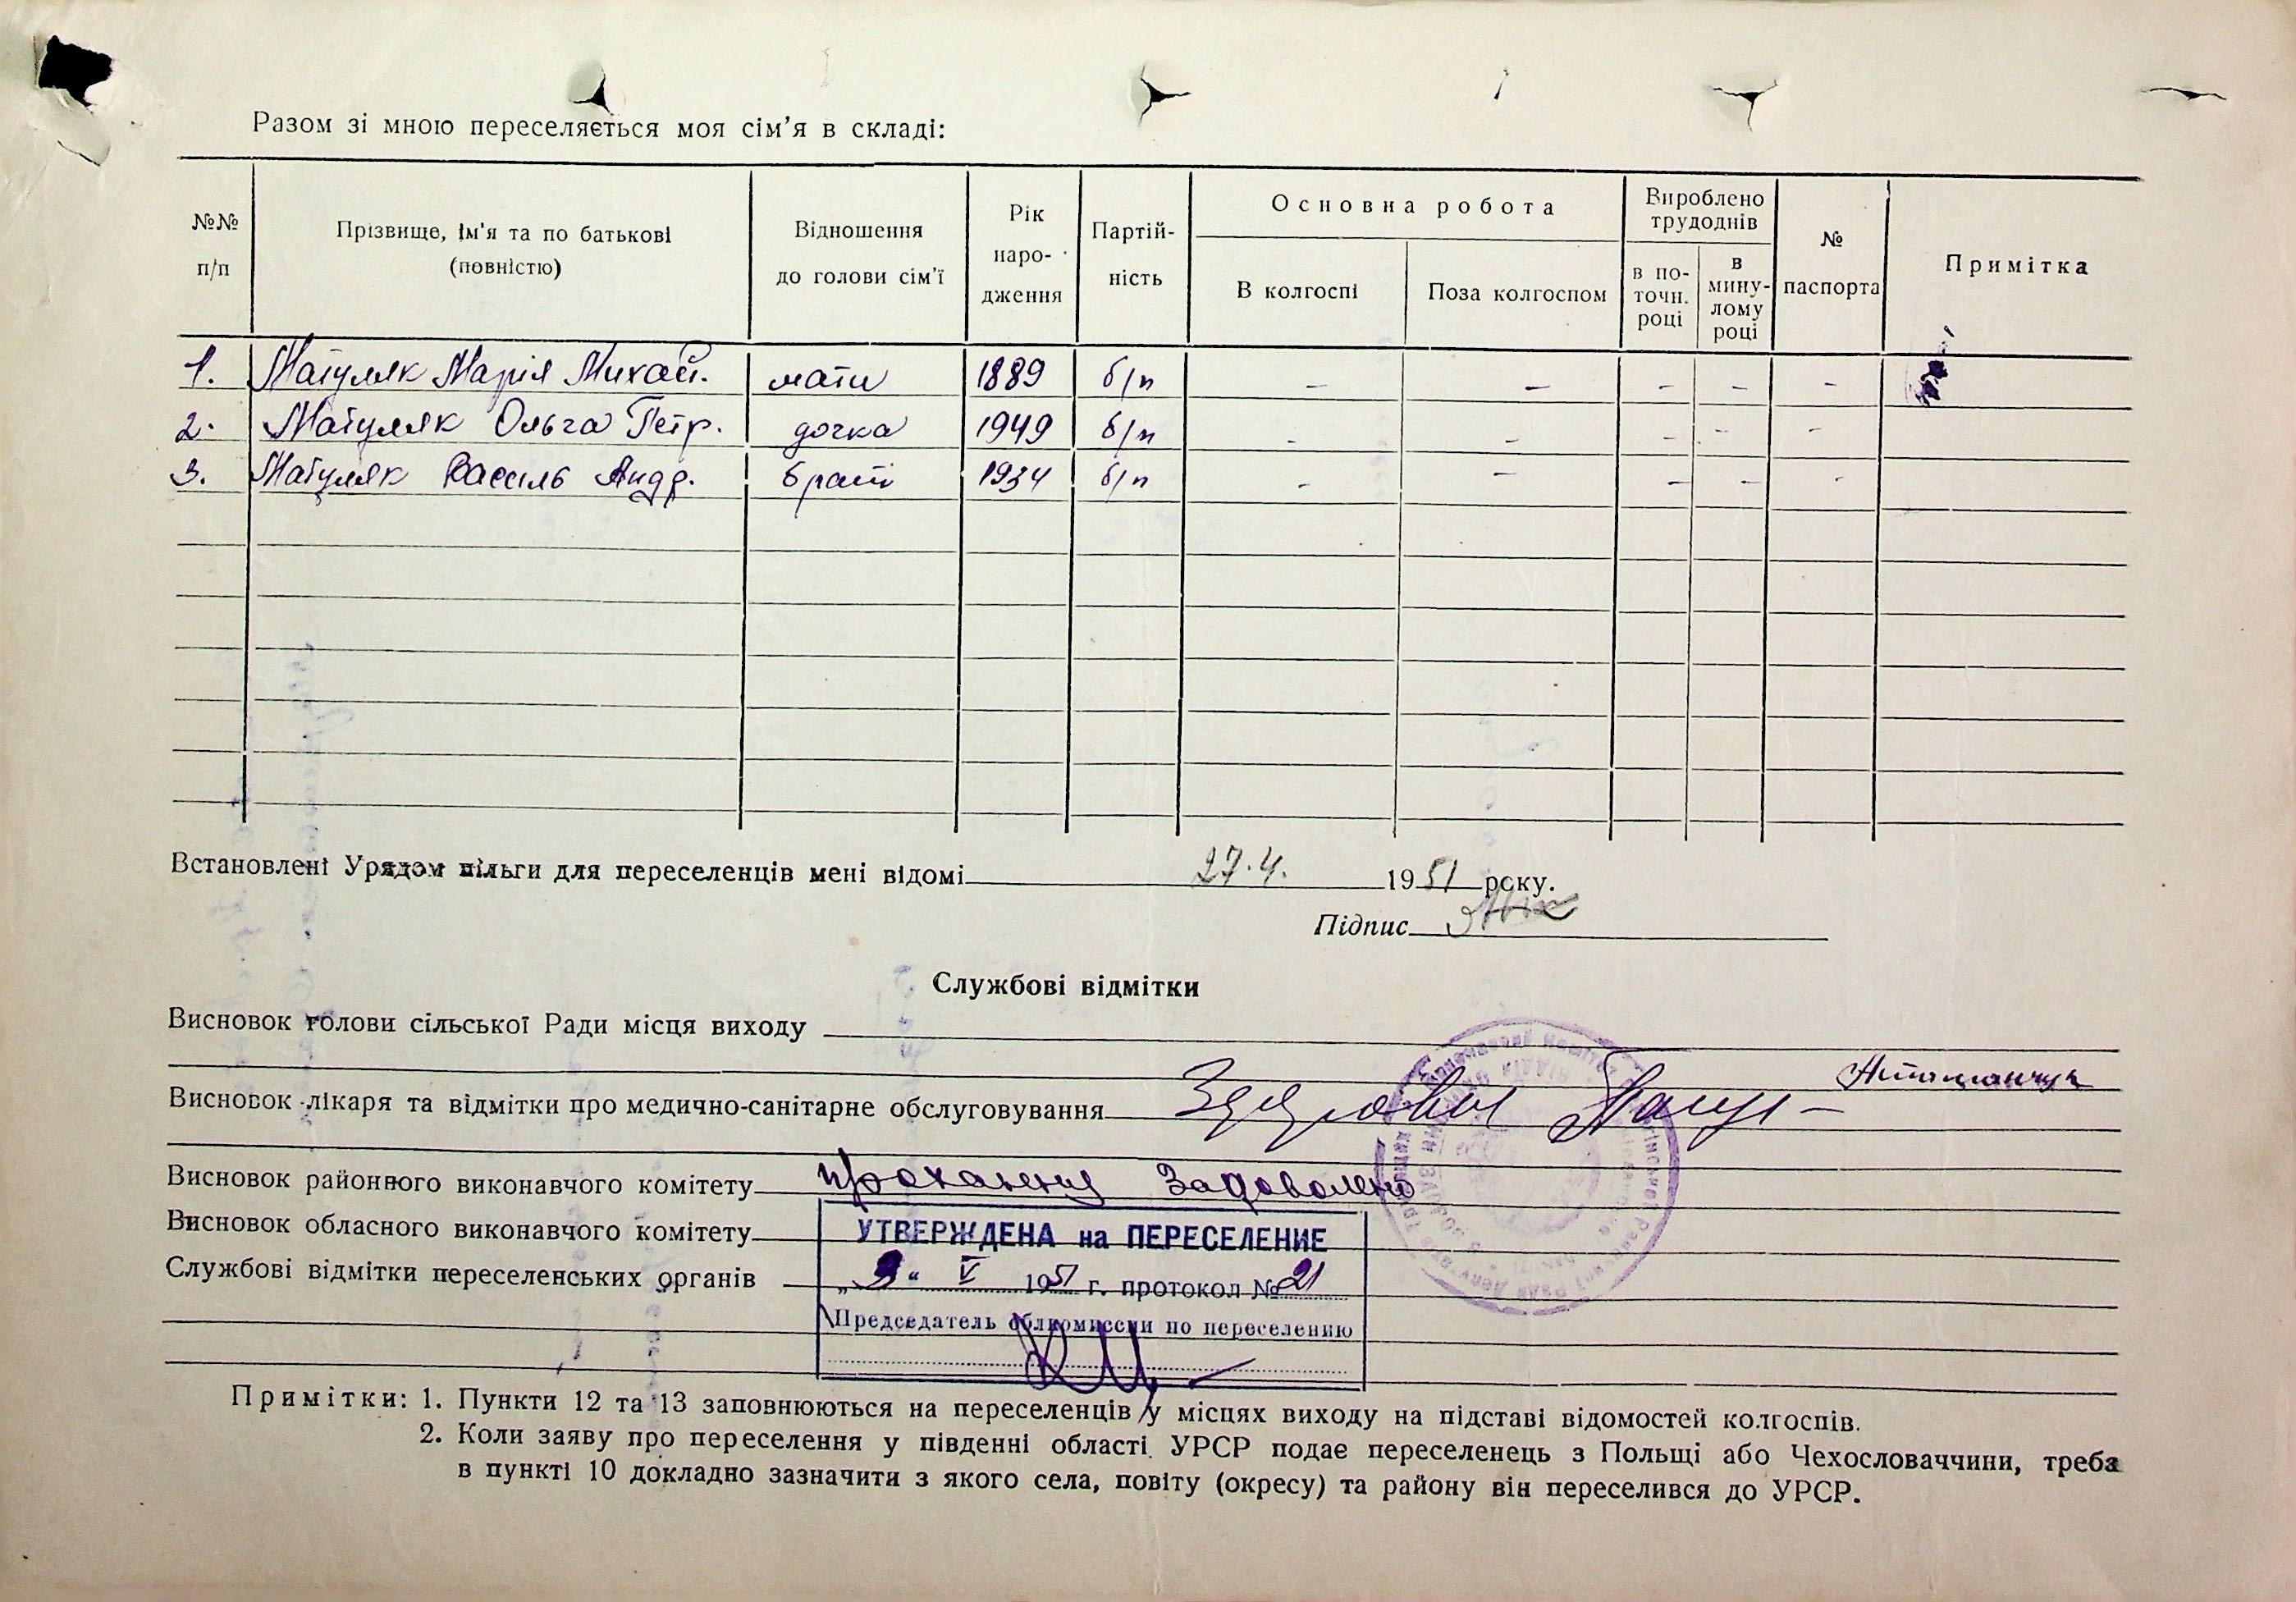 Разом зі мною переселяється моя сім'я в складі:
№№ п/п
Прізвище, ім'я та по батькові (повністю)
Відношення до голови сім'ї
Рік наро-дження
Партій-ність
Основна робота
В колгоспі
Поза колгоспом
Вироблено трудоднів
в по-точн. році
в мину-лому році
№ паспорта
Примітка
1. Матуляк Марія Михай. мати 1889 б/п – – – – –
2. Матуляк Ольга Петр. дочка 1949 б/п – – – – –
3. Матуляк Василь Андр. брат 1934 б/п – – – – –
Встановлені Урядом пільги для переселенців мені відомі 27.4. 1951 року.
Підпис
Службові відмітки
Висновок голови сільської Ради місця виходу
Висновок лікаря та відмітки про медично-санітарне обслуговування Здорові
Висновок районного виконавчого комітету прохання Задоволено
Висновок обласного виконавчого комітету
УТВЕРЖДЕНА на ПЕРЕСЕЛЕНИЕ
Службові відмітки переселенських органів
„9“ V 1951 г. протокол № 21
Председатель облкомиссии по переселению
Примітки: 1. Пункти 12 та 13 заповнюються на переселенців у місцях виходу на підставі відомостей колгоспів.
2. Коли заяву про переселення у південні області УРСР подає переселенець з Польщі або Чехословаччини, треба
в пункті 10 докладно зазначити з якого села, повіту (окресу) та району він переселився до УРСР.